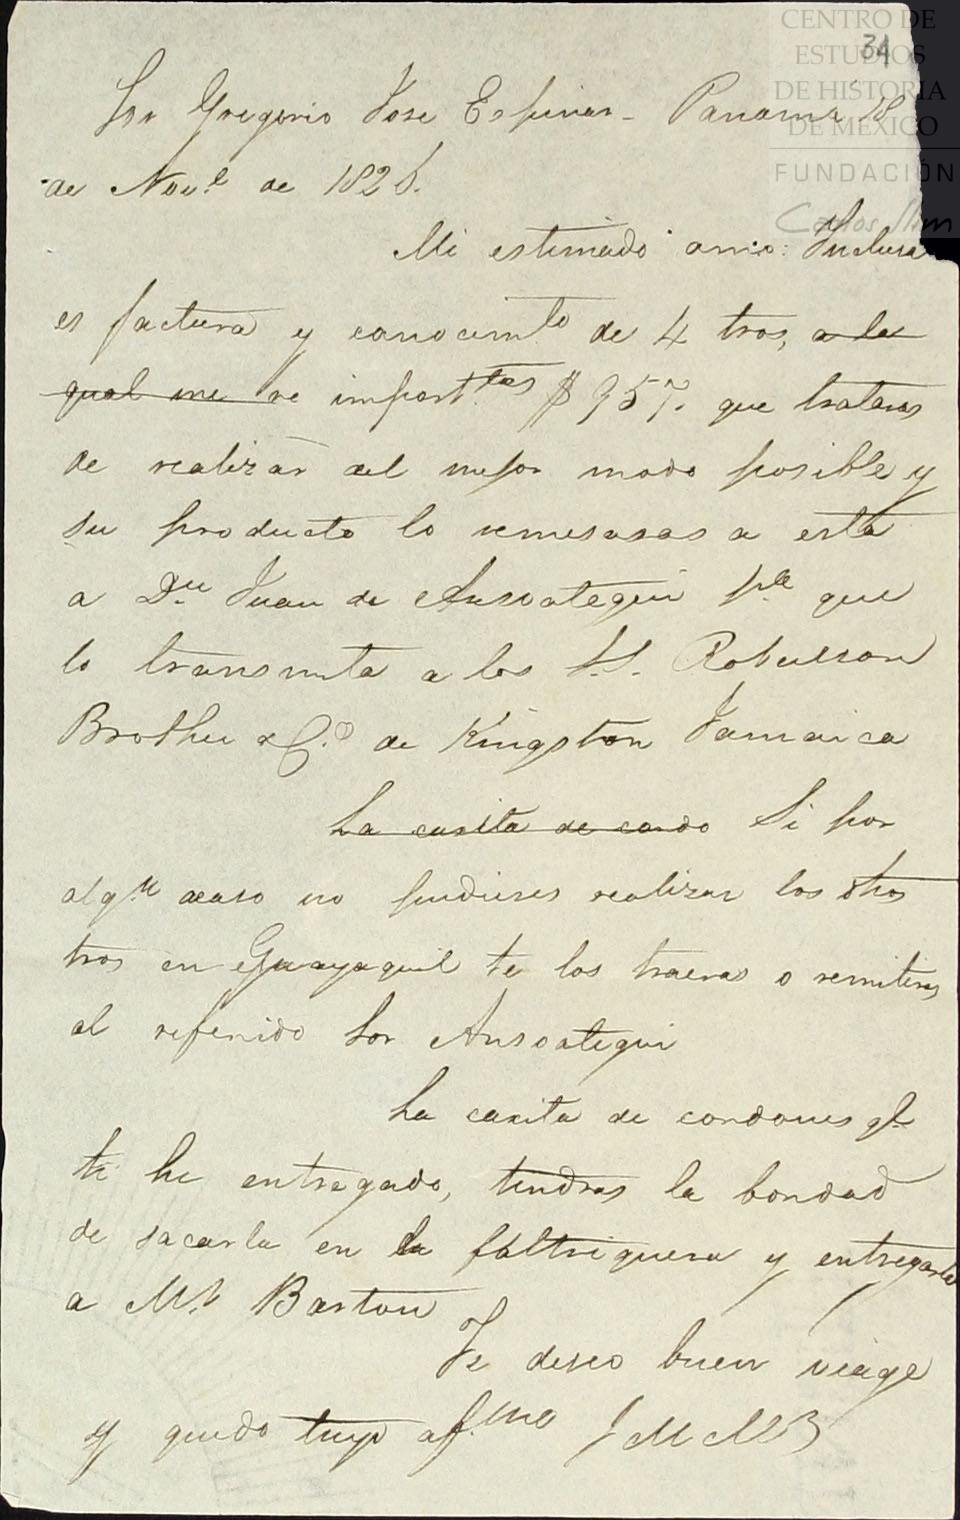 CENTRO DE
ESTUDIOS
DE HISTORIA
DE MÉXICO
FUNDACIÓN
Carlos Slim
34
Sor Gregorio José Espinar - Panamá 18
de Nove de 182
Mi estimado amo: Inclusa
es factura y conocimto de 4 tros, a la
qual me se importtes $957. que trataras
de realizar del mejor modo posible y
su producto lo remesaras a esta
a Dn Juan de Ansoategui pa que
lo transmita a los S.S. Robertson
Brother & Co. de Kingston Jamaica
La caxita de cordo Si por
algn acaso no pudieses realizar los otros
tros en Guayaquil te los traeras o remitiras
al referido Sor Ansoategui
La caxita de cordones qe
te he entregado, tendras la bondad
de sacarla en la faltriquera y entregarla
a Mr Barton
Te deseo buen viage
y quedo tuyo afmo J M M B